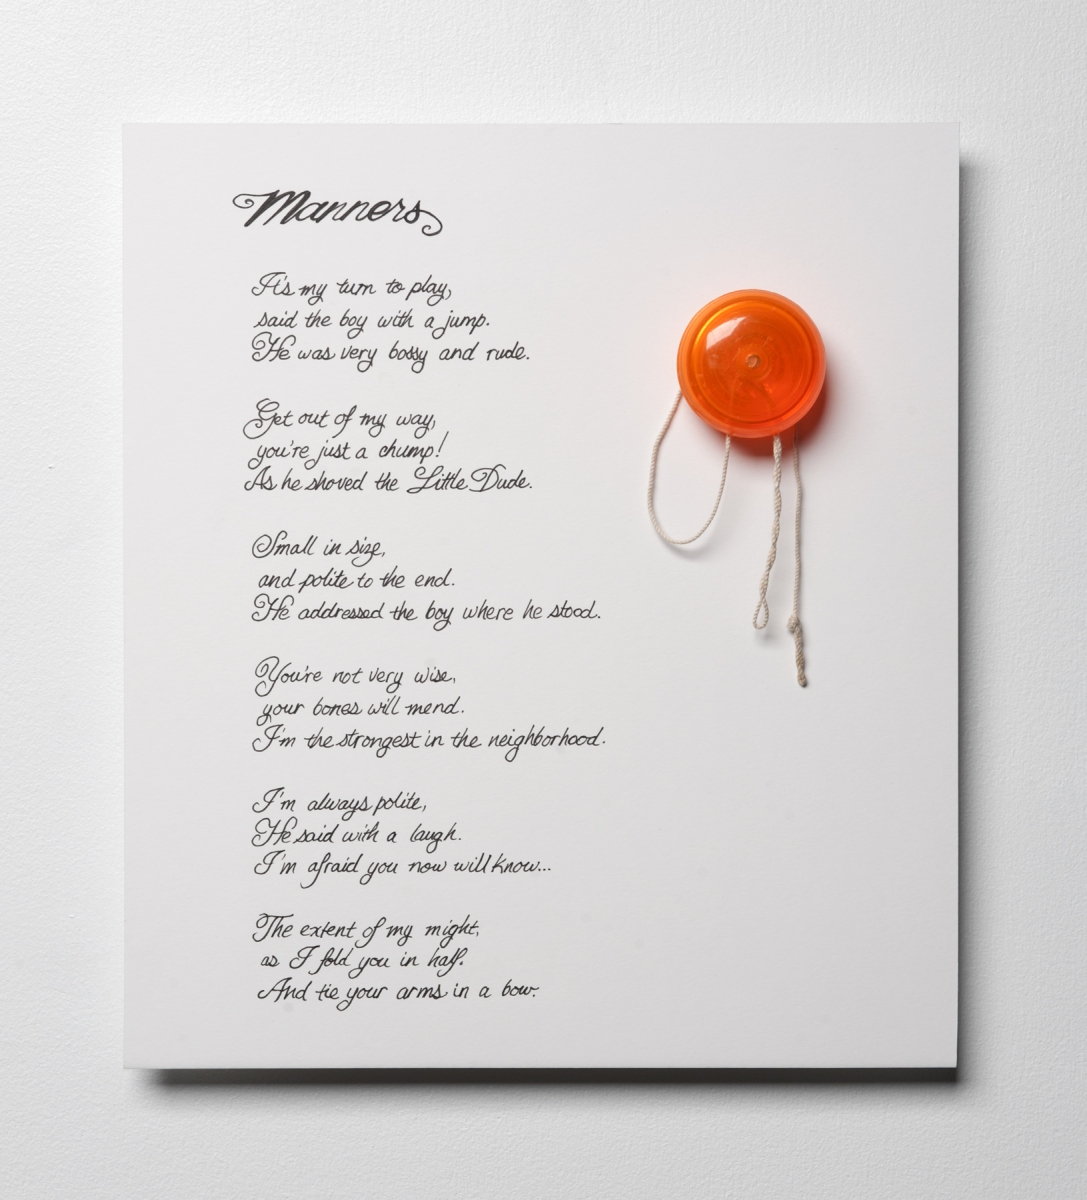 Manners
It's my turn to play,
said the boy with a jump.
He was very bossy and rude.
Get out of my way,
you're just a chump!
As he shoved the Little Dude.
Small in size,
and polite to the end.
He addressed the boy where he stood.
You're not very wise,
your bones will mend.
I'm the strongest in the neighborhood.
I'm always polite,
He said with a laugh.
I'm afraid you now will know...
The extent of my might,
as I fold you in half.
And tie your arms in a bow.